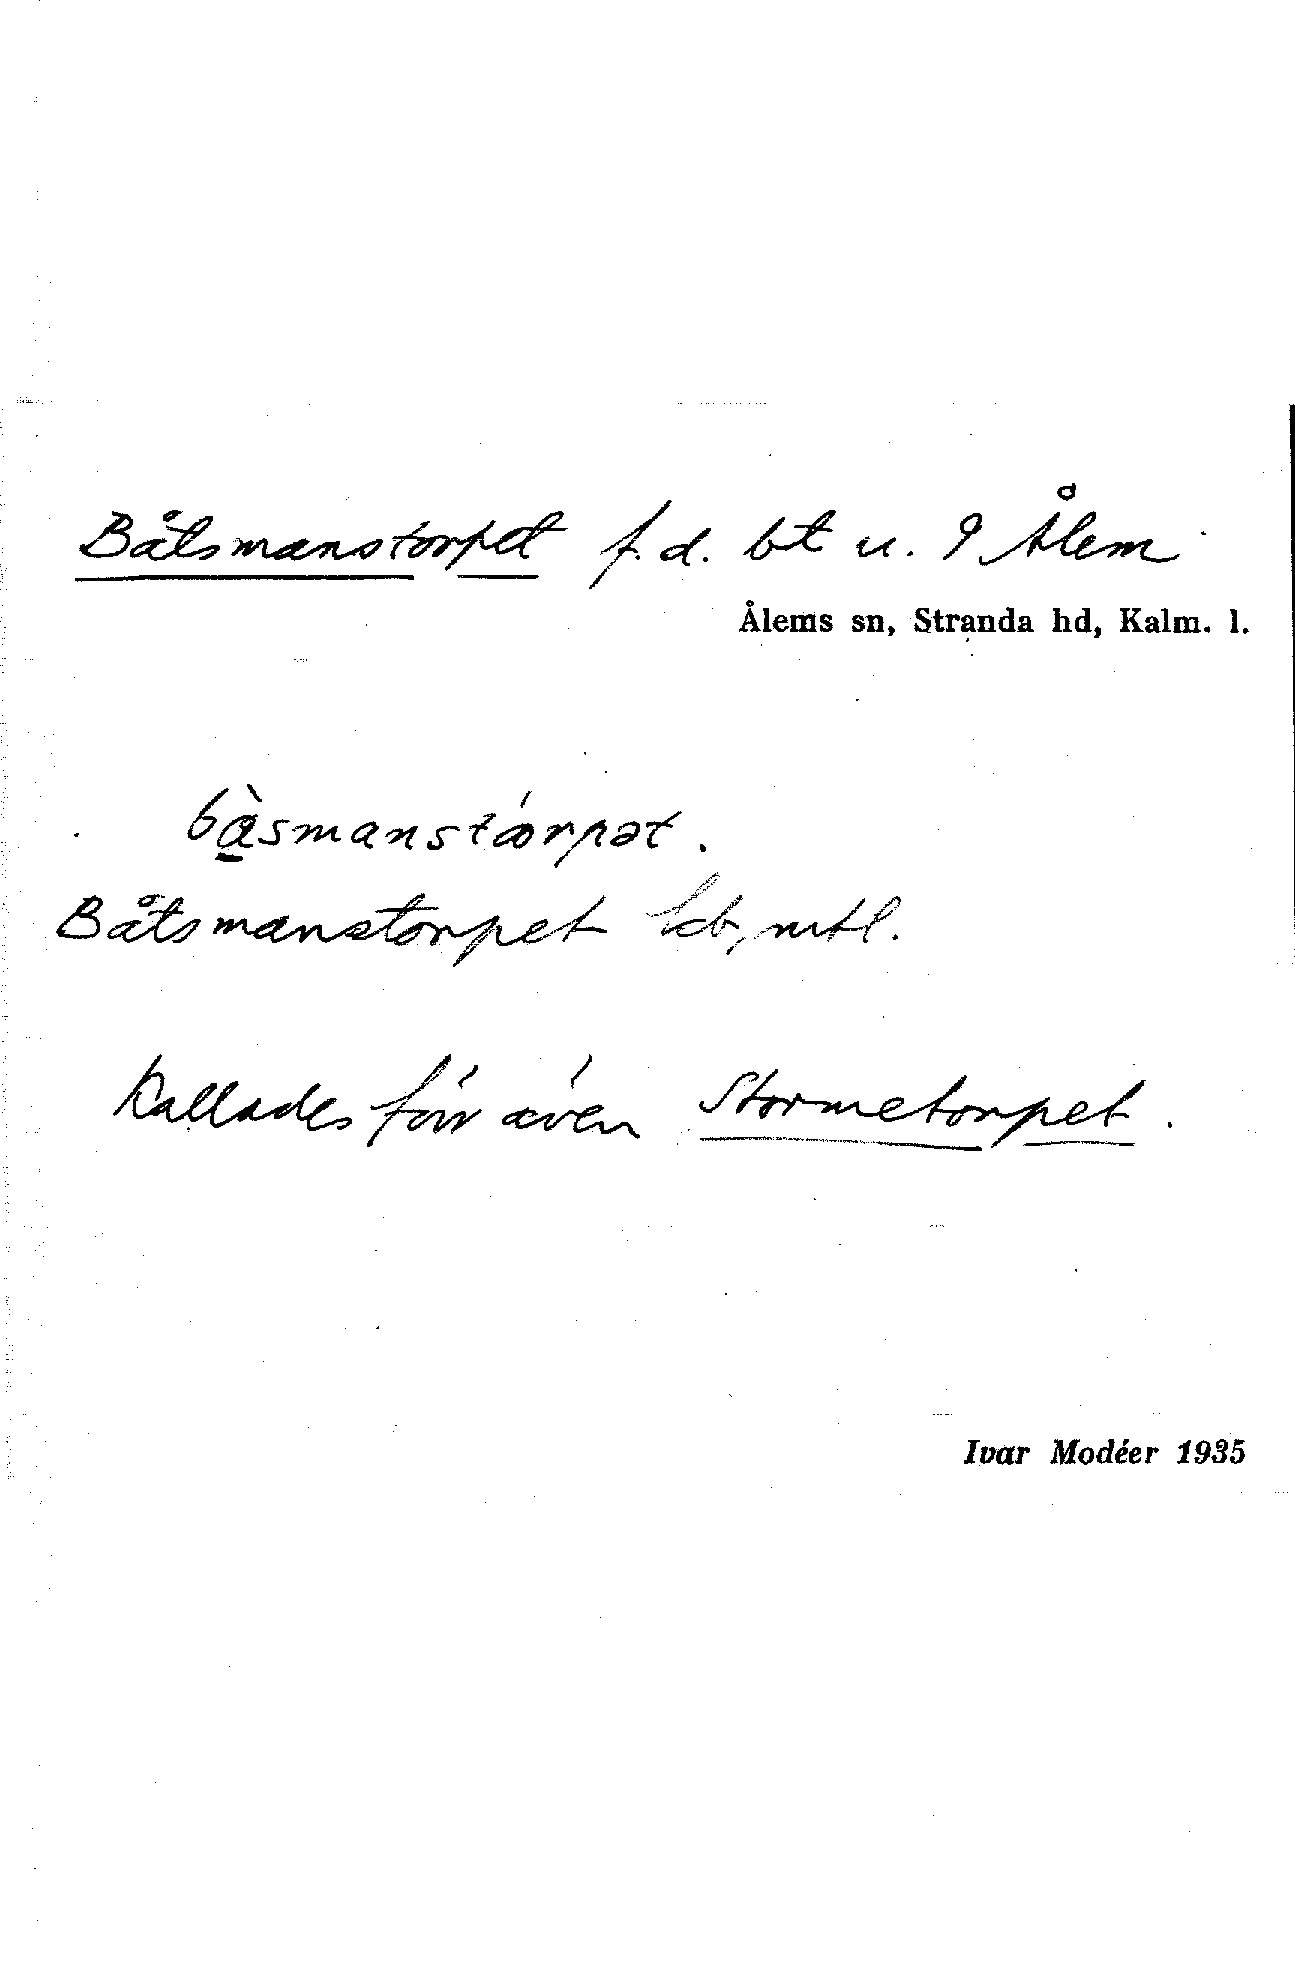 Båtsmanstorpet f.d. bt u. 9 Ålem
Ålems sn, Stranda hd, Kalm. l.
bàsmanstórpət.
Båtsmanstorpet Lcb, mtl.
Kallades förr även Stormetorpet.
Ivar Modéer 1935